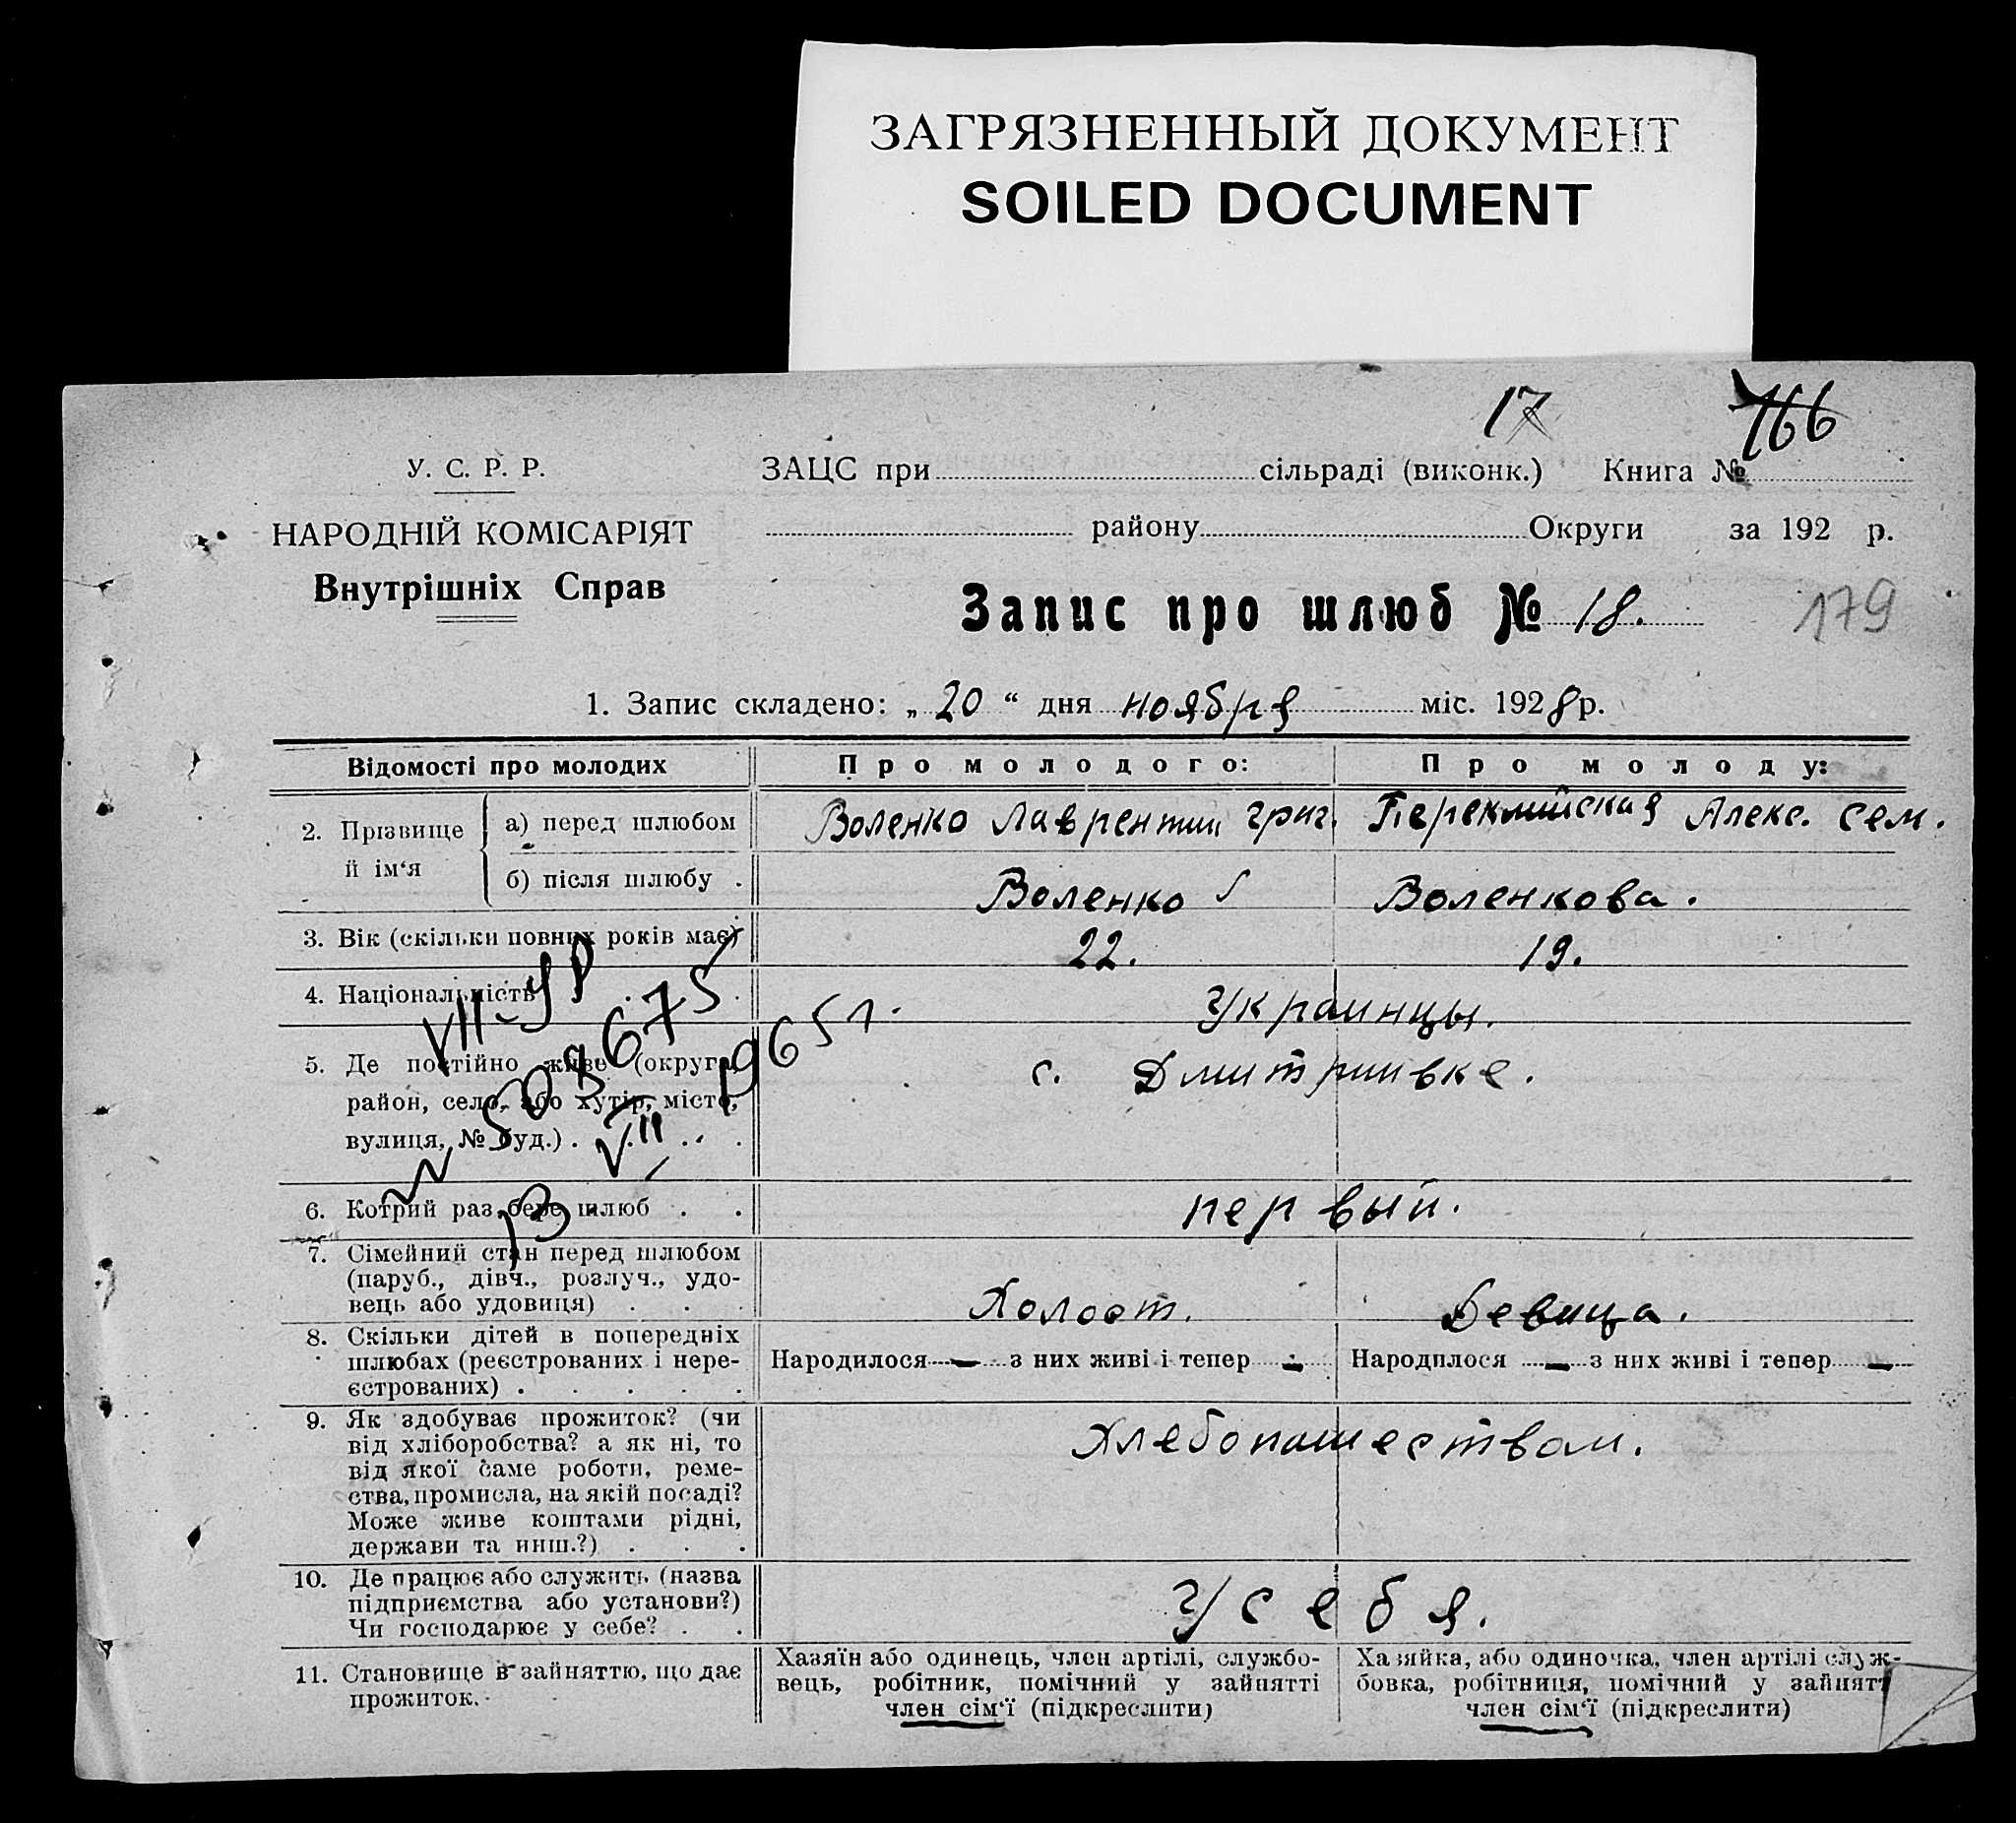 ЗАГРЯЗНЕННЫЙ ДОКУМЕНТ
SOILED DOCUMENT
17 166
У. С. Р. Р.
ЗАЦС при сільраді (виконк.) Книга №
НАРОДНІЙ КОМІСАРІЯТ
району Округи за 192 р.
Внутрішніх Справ
Запис про шлюб № 18.
179
1. Запис складено: „20“ дня ноября міс. 1928 р.
Відомості про молодих
Про молодого:
Про молоду:
2. Прізвище й ім‘я
а) перед шлюбом
Воленко Лаврентий Григ.
Алекс. Сем.
б) після шлюбу .
Воленко
Воленкова.
3. Вік (скільки повних років має)
22.
19.
4. Національність
Украинцы.
5. Де постійно живе (округа,
район, село, або хутір, місто,
вулиця, № буд.) .
с. Дмитриивке.
VII-УР
503675
VII 1965 г.
6. Котрий раз бере шлюб . .
первый.
7. Сімейний стан перед шлюбом
(паруб., дівч., розлуч., удо-
вець або удовиця) . . .
Холост.
Девица.
8. Скільки дітей в попередніх
шлюбах (реєстрованих і нере-
єстрованих) . . . . .
Народилося — з них живі і тепер —
Народилося — з них живі і тепер —
9. Як здобуває прожиток? (чи
від хліборобства? а як ні, то
від якої саме роботи, реме-
ства, промисла, на якій посаді?
Може живе коштами рідні,
держави та инш.?) . . .
Хлебопашеством.
10. Де працює або служить (назва
підприємства або установи?)
Чи господарює у себе? . .
У себя.
11. Становище в зайняттю, що дає
прожиток.
Хазяїн або одинець, член артілі, службо-
вець, робітник, помічний у зайнятті
член сім‘ї (підкреслити)
Хазяйка, або одиночка, член артілі служ-
бовка, робітниця, помічний у зайнятт
член сім‘ї (підкреслити)